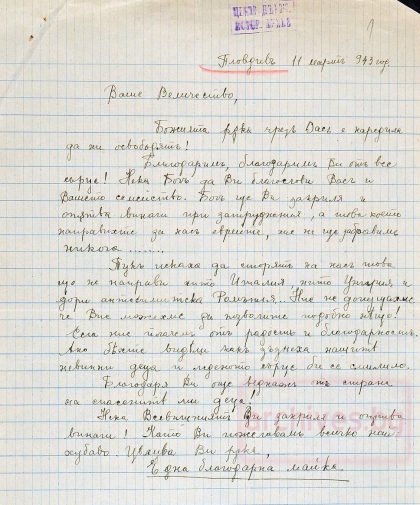 ЦЕНТР. ДЪРЖ.
ИСТОР. АРХИВ
1
Пловдивъ 11 мартъ 943 год.
Ваше Величество,
Божията ръка чрезъ Васъ е наредила
да ни освободятъ!
Благодаримъ, благодаримъ Ви отъ все
сърце! Нека Богъ да Ви благослови Васъ и
Вашето семейство. Богъ ще Ви закриля и
упътва винаги при затруднения, а това което
направихте за насъ евреите, ние не ще забравимъ
никога ........
Тукъ искаха да сторятъ на насъ това
що не направи нито Италия, нито Унгария и
дори антисемитска Ромъния. Ние не допущахме
че Вие можехме да позволите подобно нещо!
Ето ние плачемъ отъ радость и благодарность.
Ако бѣхте видѣли какъ зъзнеха нашите
невинни деца и леденото сърце би се смилило.
Благодаря Ви още веднажъ отъ страна
на спасените ми деца!
Нека Всевишниятъ Ви закриля и упътва
винаги! Като Ви пожелавамъ всичко най
хубаво. Целива Ви ръка,
Една благодарна майка.
archives.bg